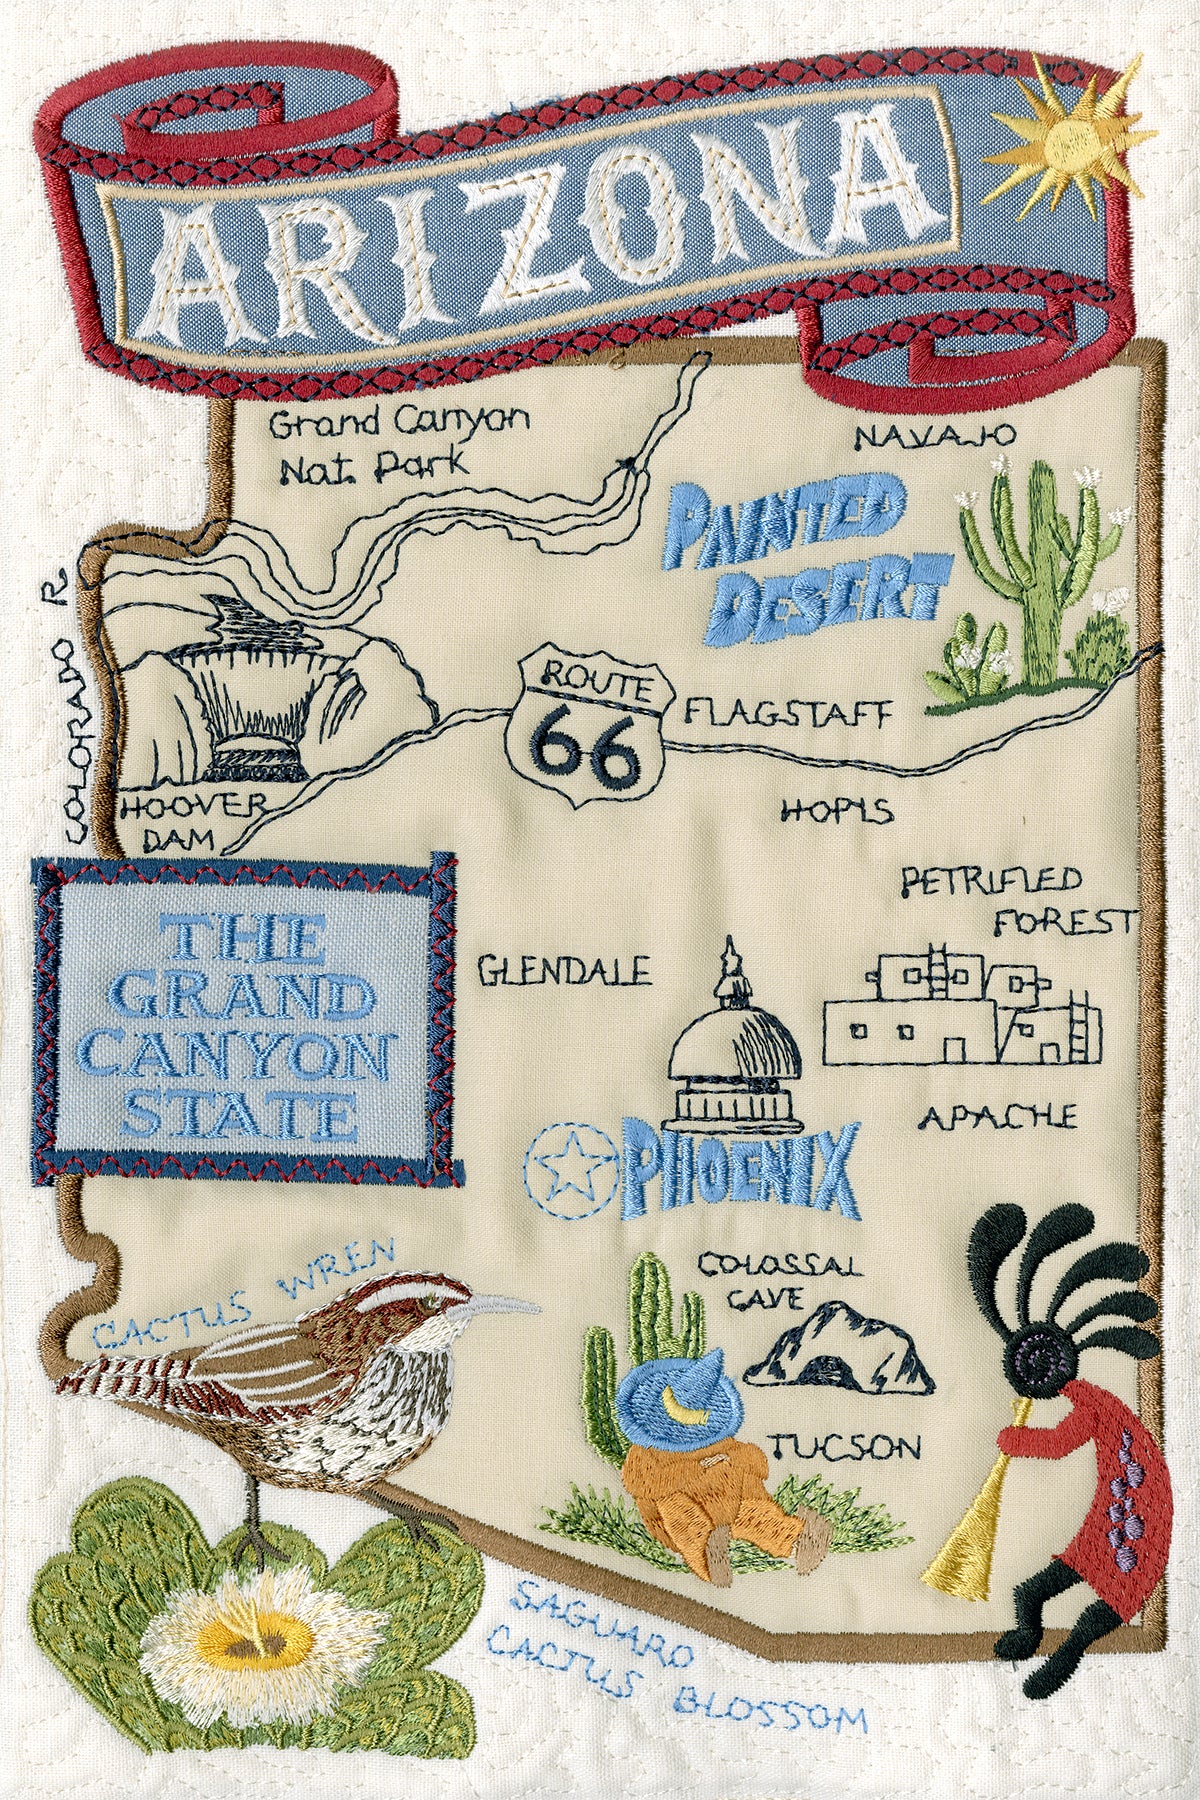 ARIZONA
Grand Canyon
Nat. Park
NAVAJO
PAINTED
DESERT
COLORADO R.
ROUTE
66
FLAGSTAFF
HOOVER
DAM
HOPIS
PETRIFIED
FOREST
THE
GRAND
CANYON
STATE
GLENDALE
APACHE
PHOENIX
CACTUS WREN
COLOSSAL
CAVE
TUCSON
SAGUARO
CACTUS BLOSSOM